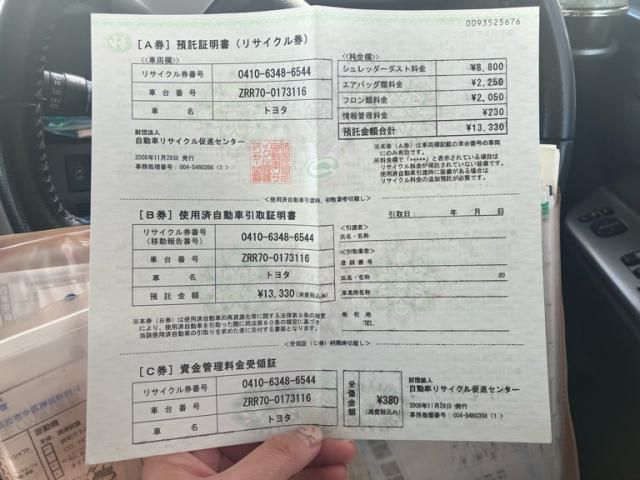 0093525676
[A券] 預託証明書 (リサイクル券)
<<車両欄>>
リサイクル券番号 0410-6348-6544
車台番号 ZRR70-0173116
車名 トヨタ
財団法人
自動車リサイクル促進センター
2008年11月28日 発行
事務処理番号:004-5460398 (1)
<<料金欄>>
シュレッダーダスト料金 ¥8,800
エアバッグ類料金 ¥2,250
フロン類料金 ¥2,050
情報管理料金 ¥230
預託金額合計 ¥13,330
※本券(A券)は車両欄記載の車台番号の車両
にのみ有効です。
※料金欄で「*****」と表示されている項目は
リサイクル料金が預託されていない装備です。
使用済自動車引渡時に装備がある場合は
リサイクル料金の追加預託が必要です。
[B券] 使用済自動車引取証明書
引取日: 年 月 日
リサイクル券番号
(移動報告番号) 0410-6348-6544
車台番号 ZRR70-0173116
車名 トヨタ
預託金額 ¥13,330 (消費税込み)
<引渡者>
氏名・名称
<引取業者>
登録番号
氏名・名称 印
事業所名
所在地
TEL.
※本券(B券)は使用済自動車の再資源化等に関する法律第9条の規定
により、使用済自動車を引取った際に同法第80条の規定に基づき
当該使用済自動車の引取りを求めた者に交付する書面となります。
[C券] 資金管理料金受領証
リサイクル券番号 0410-6348-6544
車台番号 ZRR70-0173116
車名 トヨタ
受領金額 ¥380
(消費税込み)
財団法人
自動車リサイクル促進センター
2008年11月28日 発行
事務処理番号:004-5460398 (1)